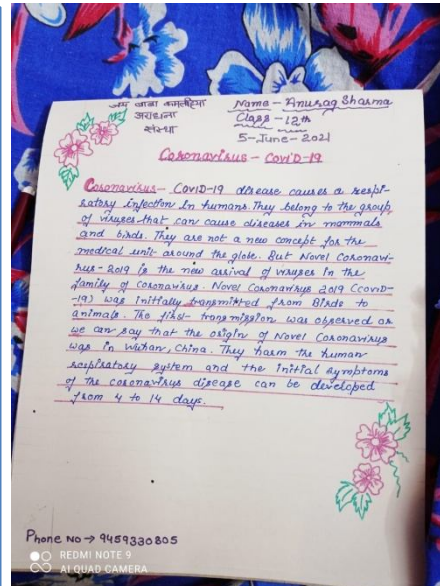 जय बाबा कमलीया
अराधना
संस्था
Name - Anurag Sharma
Class - 12th
5-June-2021
Coronavirus - CoviD-19
Coronavirus - CoviD-19 disease causes a respi-
ratory infection in humans. They belong to the group
of viruses that can cause diseases in mammals
and birds. They are not a new concept for the
medical unit around the globe. But Novel Coronavi-
rus-2019 is the new arrival of viruses in the
family of Coronavirus. Novel Coronavirus 2019 (CoviD-
-19) was initially transmitted from Birds to
animals. The first transmission was observed or
we can say that the origin of Novel Coronavirus
was in Wuhan, China. They harm the human
respiratory system and the initial symptoms
of the coronavirus disease can be developed
from 4 to 14 days.
Phone No → 9459330805
REDMI NOTE 9
AI QUAD CAMERA